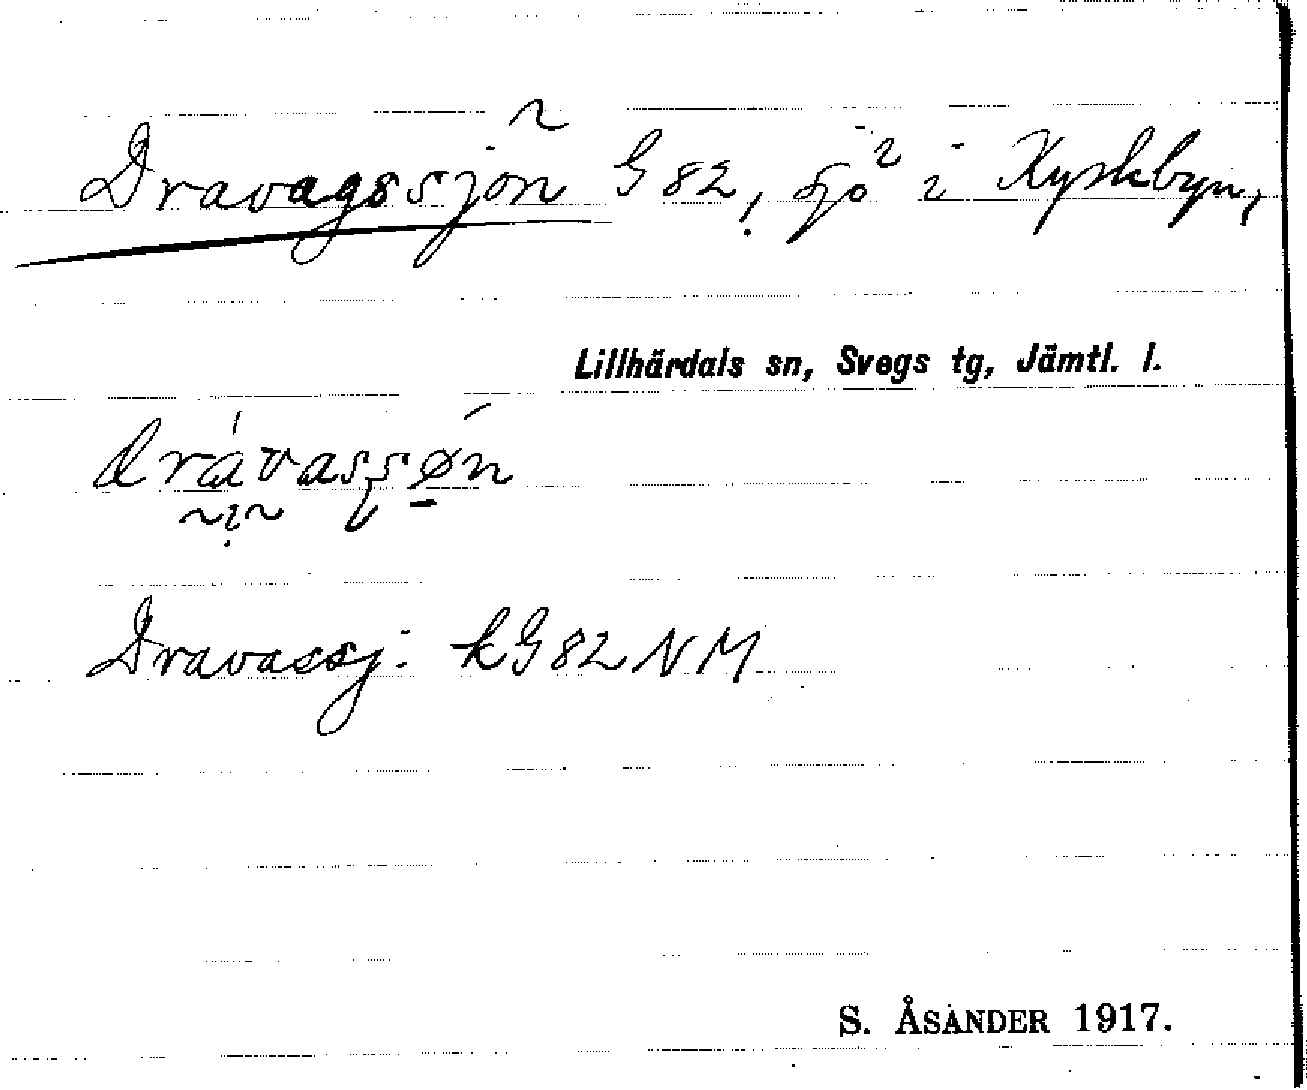 Dravagssjön G 82, sjö i Kyrkbyn,
Lillhärdals sn, Svegs tg, Jämtl. l.
Dravassj: kG 82 NM
S. ÅSANDER 1917.